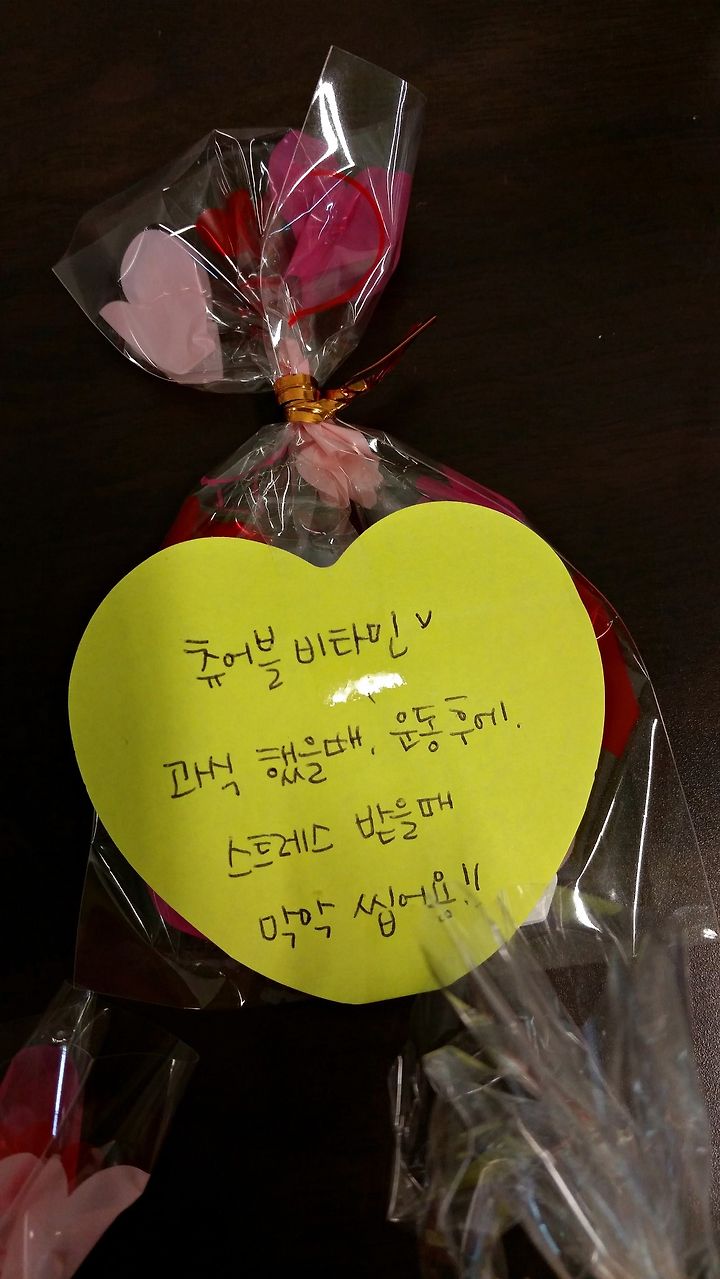 츄어블 비타민 v
과식 했을때, 운동후에!.
스트레스 받을때
막악 씹어용!!